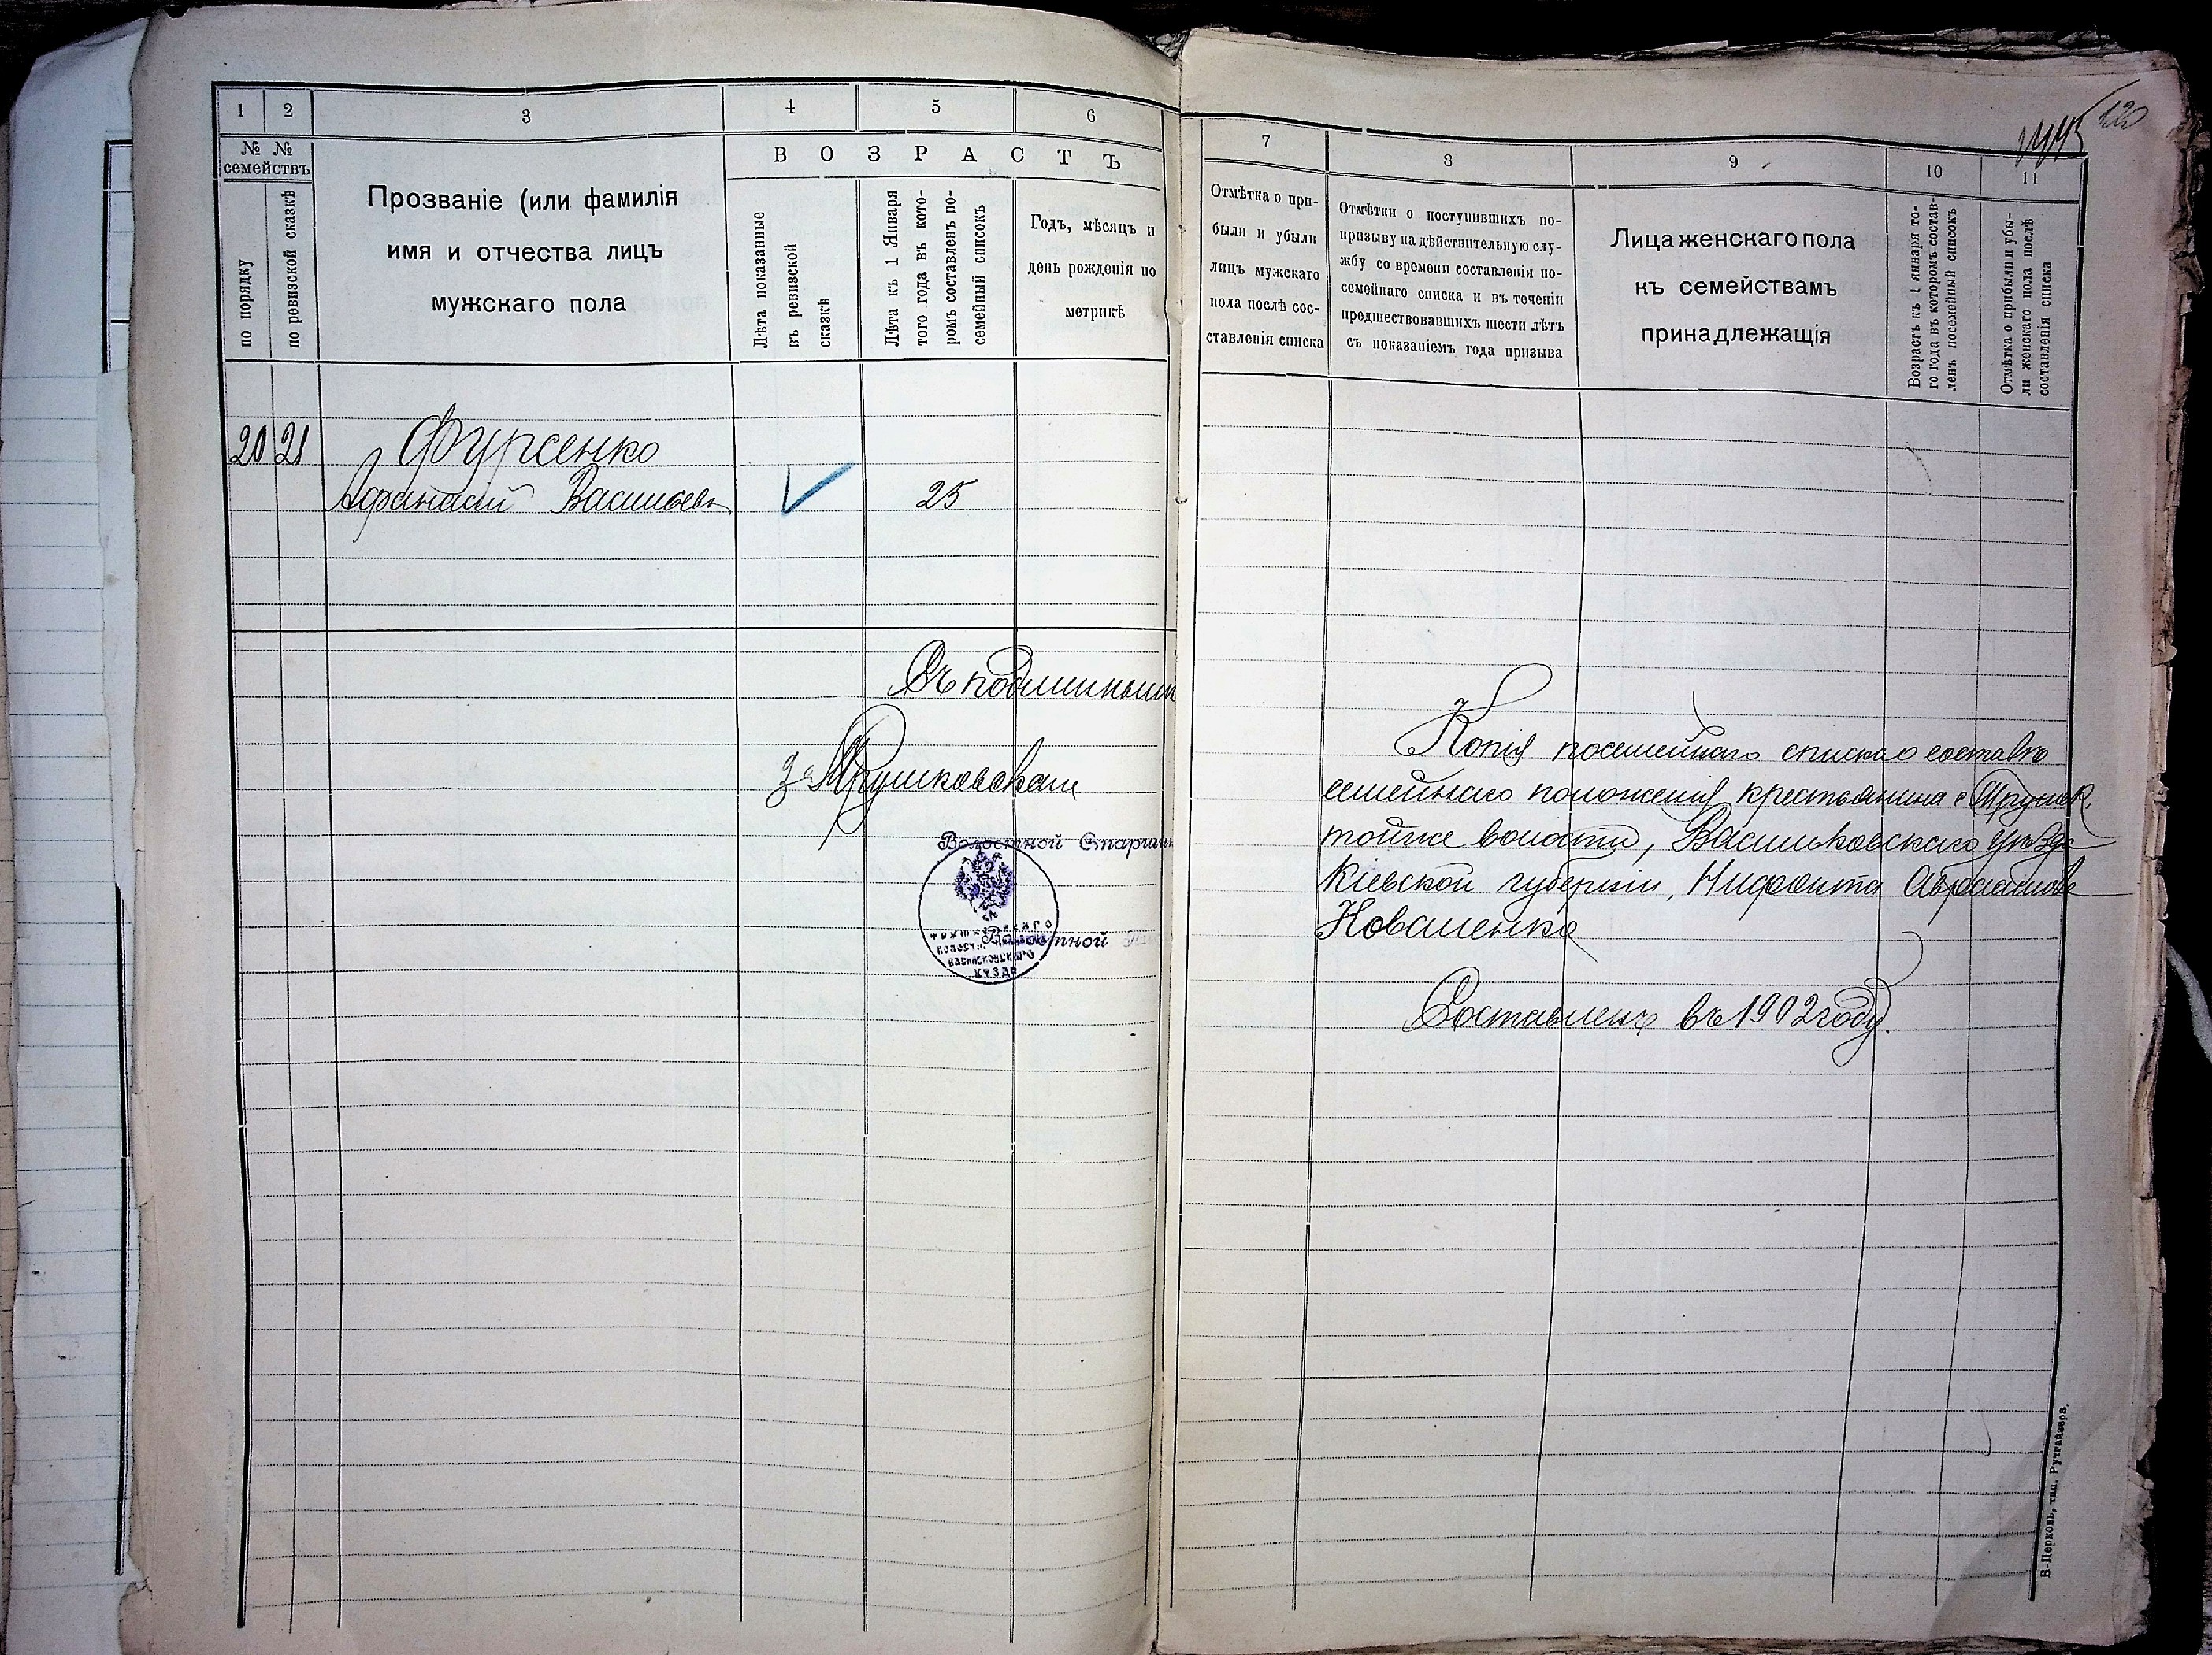 1 2 3 4 5 6
№ № семействъ
по порядку
по ревизской сказкѣ
Прозваніе (или фамилія
имя и отчества лицъ
мужскаго пола
ВОЗРАСТЪ
Лѣта показанные
въ ревизской
сказкѣ
Лѣта къ 1 Января
того года въ кото-
ромъ составленъ по-
семейный списокъ
Годъ, мѣсяцъ и
день рожденія по
метрикѣ
20 21 Фурсенко
Афанасій Васильевъ 25
Съ подлиннымъ
Волостной Старшин
Волостной
7 8 9 10 11
120
Отмѣтка о при-
были и убыли
лицъ мужскаго
пола послѣ сос-
ставленія списка
Отмѣтки о поступившихъ по-
призыву на дѣйствительную слу-
жбу со времени составленія по-
семейнаго списка и въ теченіи
предшествовавшихъ шести лѣтъ
съ показаніемъ года призыва
Лица женскаго пола
къ семействамъ
принадлежащія
Возрастъ къ 1 января то-
го года въ которомъ состав-
ленъ посемейный списокъ
Отмѣтка о прибыли и убы-
ли женскаго пола послѣ
составленія списка
Копія посемейнаго списка о составѣ
семейнаго положенія крестьянина с
тойже волости, Васильковскаго уѣзда
Кіевской губерніи, Нифонта
Коваленка
Составленъ въ 1902 году.
Б.-Церковь, тип. Рутгайзера.